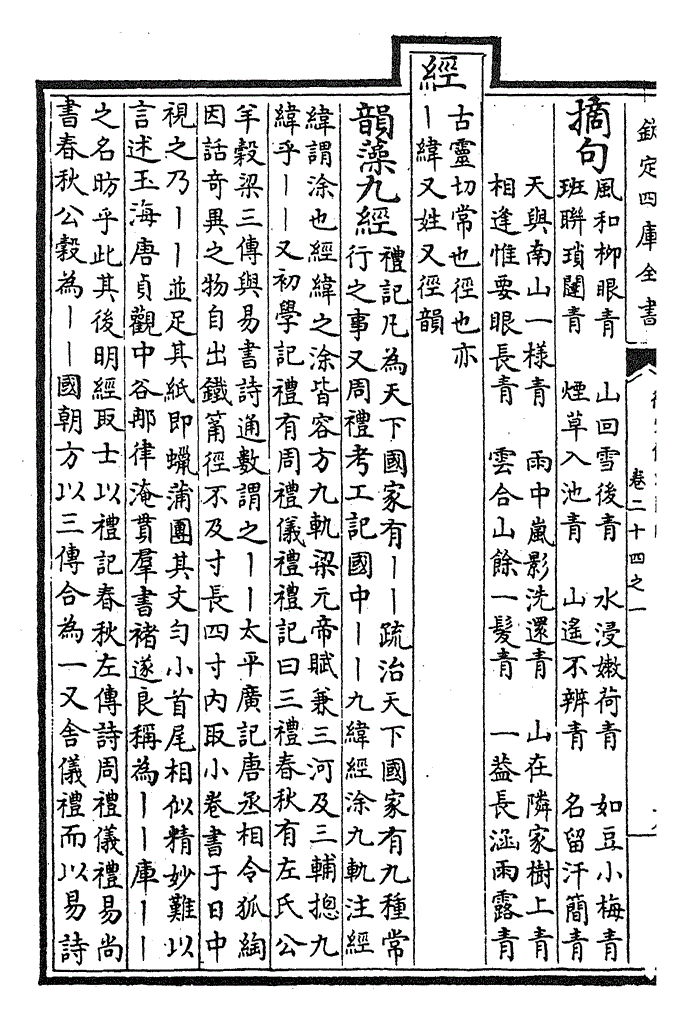 欽定四庫全書
卷二十四之一
摘句
風和柳眼青　山回雪後青　水浸嫩荷青　如豆小梅青
班聯瑣闥青　煙草入池青　山遙不辨青　名留汗簡青
天與南山一様青　雨中嵐影洗還青　山在隣家樹上青
相逢惟要眼長青　雲合山餘一髮青　一益長涵雨露青
經
古靈切常也徑也亦
丨緯又姓又徑韻
韻藻九經
禮記凡為天下國家有丨丨疏治天下國家有九種常
行之事又周禮考工記國中丨丨九緯經涂九軌注經
緯謂涂也經緯之涂皆容方九軌梁元帝賦兼三河及三輔摠九
緯乎丨丨又初學記禮有周禮儀禮禮記曰三禮春秋有左氏公
羊穀梁三傳與易書詩通數謂之丨丨太平廣記唐丞相令狐綯
因話奇異之物自出鐵筩徑不及寸長四寸内取小卷書于日中
視之乃丨丨並足其紙即蠟蒲團其文勻小首尾相似精妙難以
言述玉海唐貞觀中谷那律淹貫羣書褚遂良稱為丨丨庫丨丨
之名昉乎此其後明經取士以禮記春秋左傳詩周禮儀禮易尚
書春秋公穀為丨丨國朝方以三傳合為一又舍儀禮而以易詩